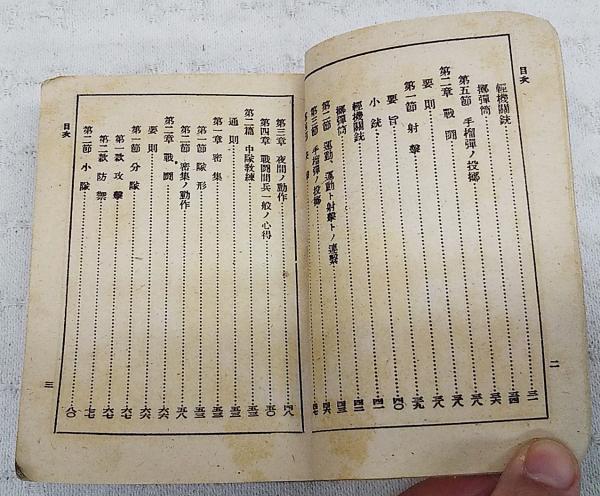 目次
輕機關銃 三一
擲彈筒 三四
第五節 手榴彈ノ投擲 三六
第二章 戰鬪 三八
要則 三八
第一節 射擊 三九
要旨 四〇
小銃 四一
輕機關銃 四二
擲彈筒
第二節 運動、運動ト射擊トノ連繫 四六
第三節 手榴彈ノ投擲
二
第三章 夜間ノ動作 四八
第四章 戰鬪間兵一般ノ心得 五〇
第二篇 中隊敎練 五三
通則 五三
第一章 密集 五三
第一節 隊形 五三
第二節 密集ノ動作 五八
第二章 戰鬪 六六
要則 六六
第一節 分隊 六七
第一款 攻擊 六七
第二款 防禦 七七
第二節 小隊 八〇
目次
三